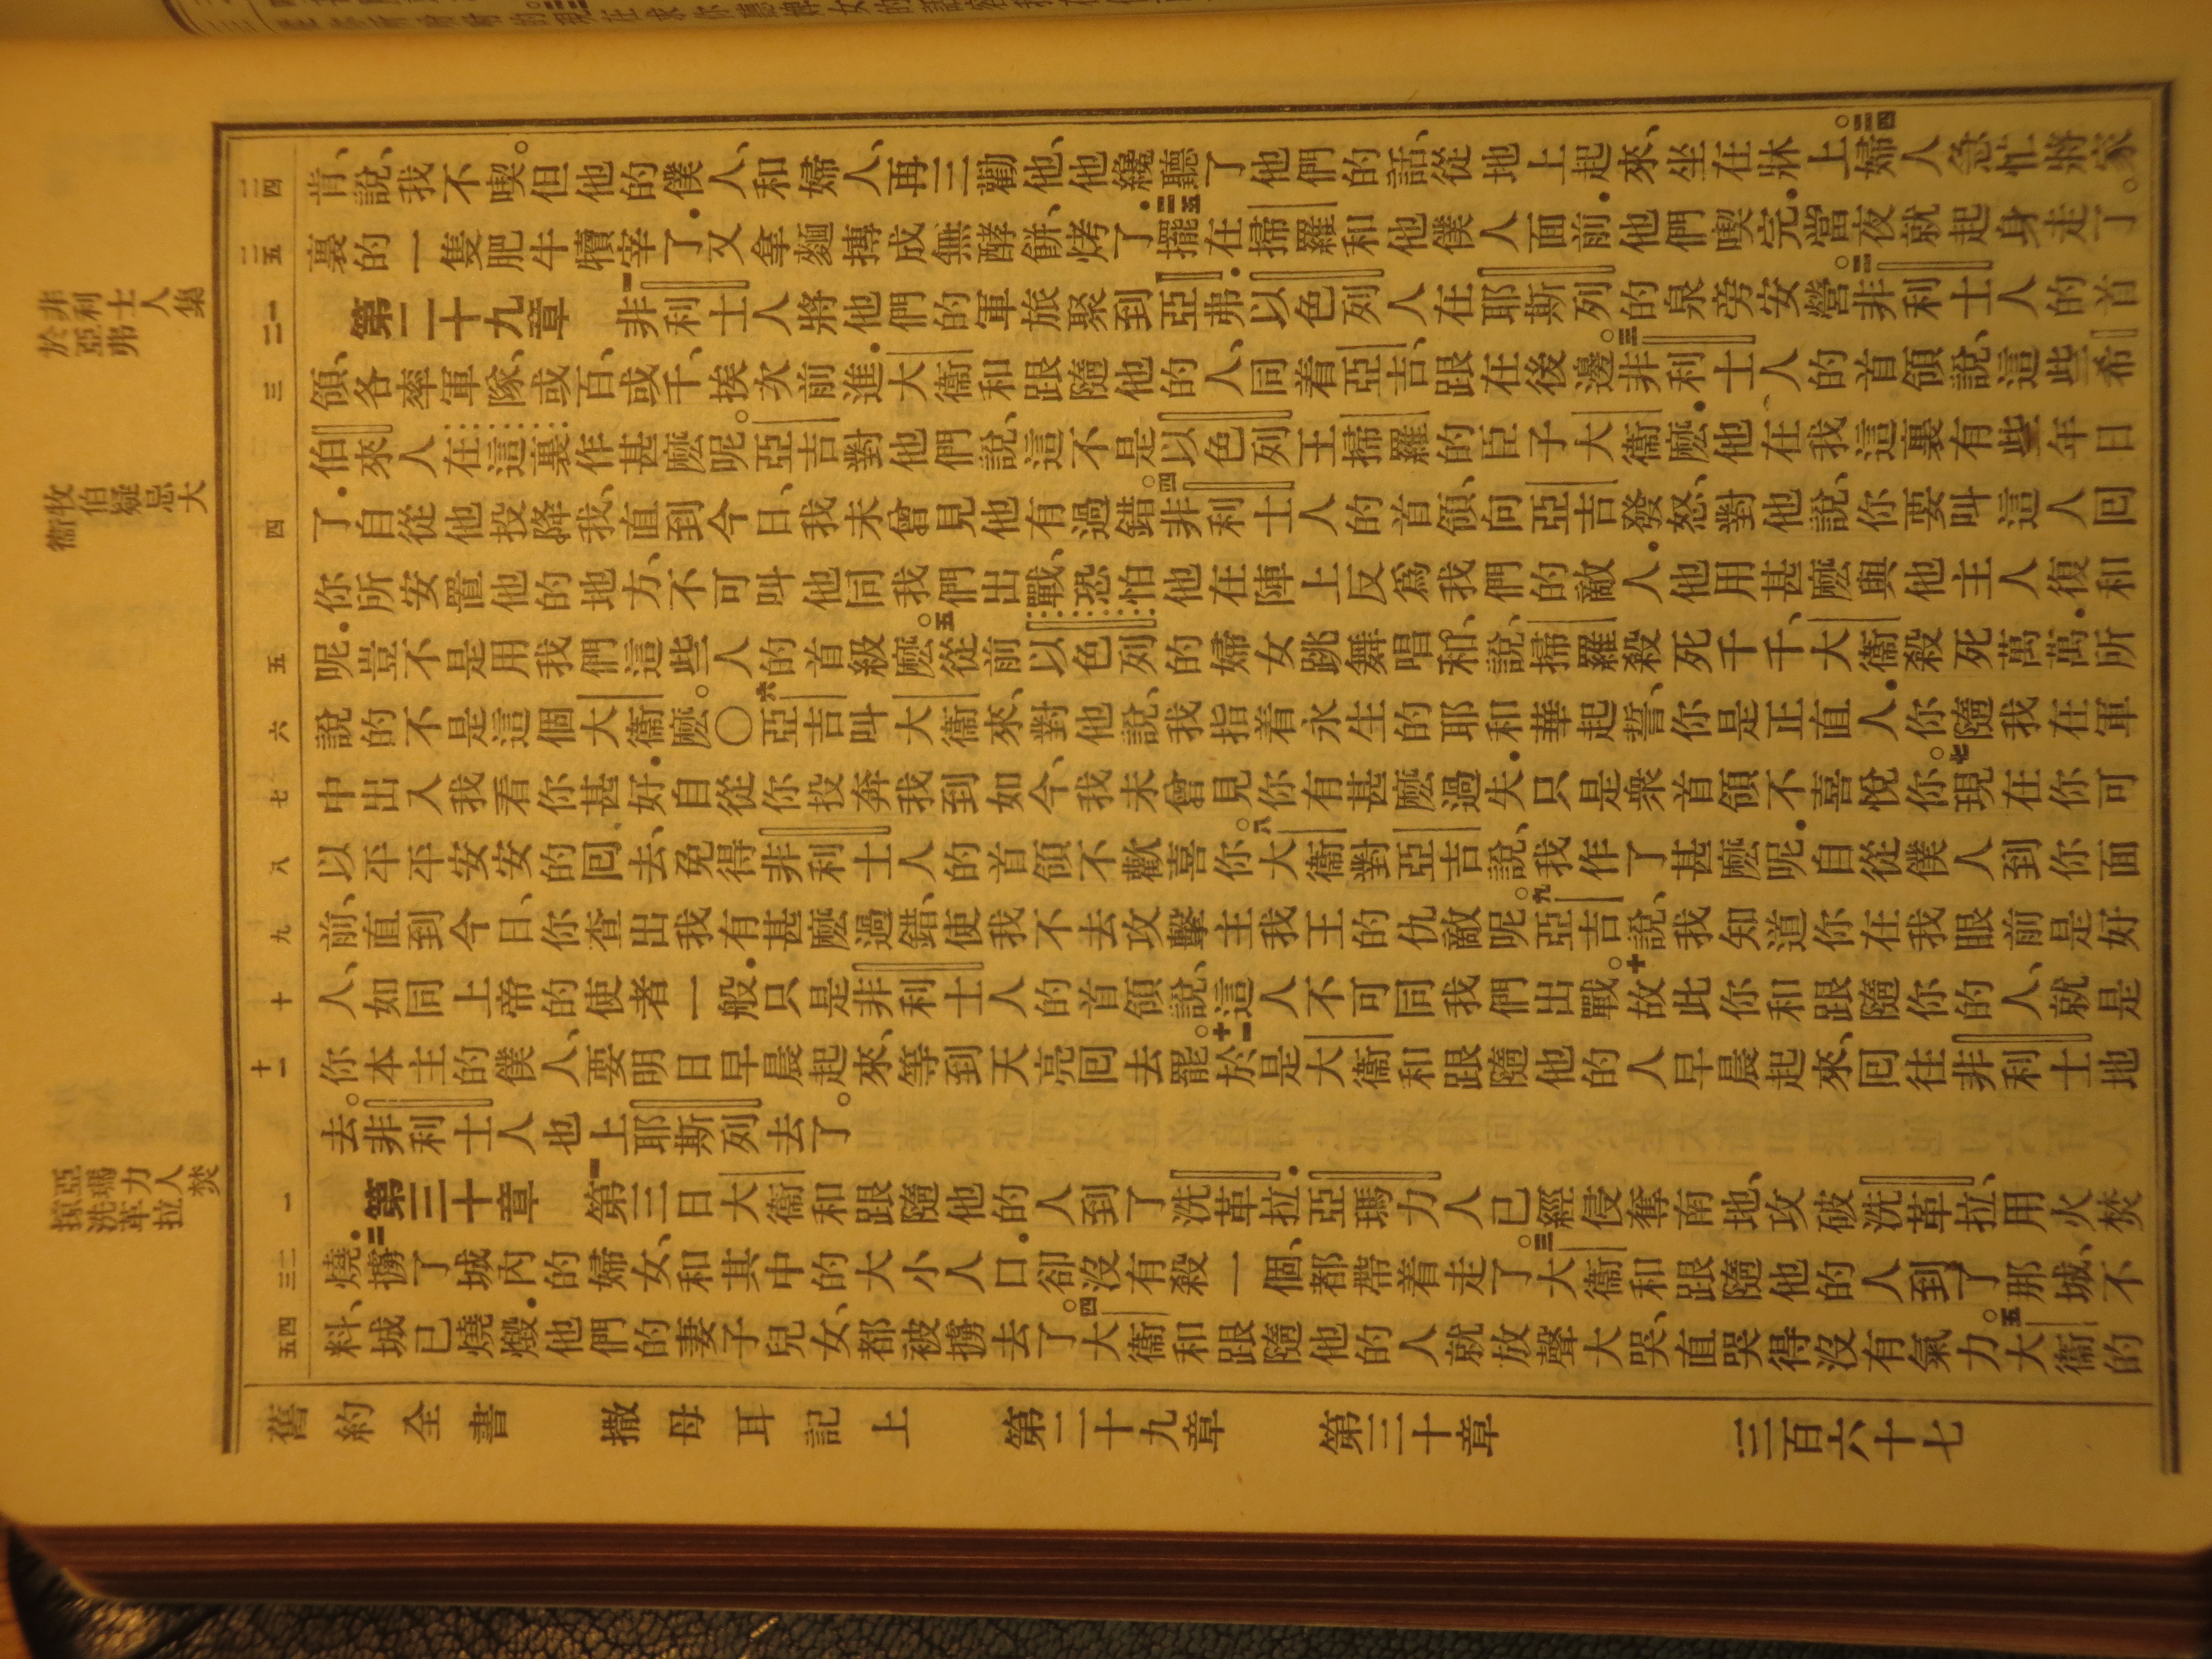 肯、說、我不喫。但他的僕人、和婦人、再三勸他、他纔聽了他們的話、從地上起來、坐在牀上。二四婦人急忙將家
裏的一隻肥牛犢宰了.又拿麵摶成無酵餅、烤了.二五擺在掃羅和他僕人面前.他們喫完.當夜就起身走了。
第二十九章 一非利士人將他們的軍旅聚到亞弗.以色列人在耶斯列的泉旁安營。二非利士人的首
領、各率軍隊、或百、或千、挨次前進.大衞和跟隨他的人、同着亞吉、跟在後邊。三非利士人的首領說、這些希
伯來人在這裏作甚麽呢。亞吉對他們說、這不是以色列王掃羅的臣子大衞麽.他在我這裏有些年日
了.自從他投降我、直到今日、我未曾見他有過錯。四非利士人的首領、向亞吉發怒、對他說、你要叫這人回
你所安置他的地方、不可叫他同我們出戰、恐怕他在陣上反爲我們的敵人.他用甚麽與他主人復和
呢.豈不是用我們這些人的首級麽。五從前以色列的婦女跳舞唱和、說、掃羅殺死千千、大衞殺死萬萬.所
說的不是這個大衞麽。〇六亞吉叫大衞來、對他說、我指着永生的耶和華起誓、你是正直人.你隨我在軍
中出入我看你甚好.自從你投奔我到如今、我未曾見你有甚麽過失.只是衆首領不喜悅你。七現在你可
以平平安安的回去、免得非利士人的首領不歡喜你。八大衞對亞吉說、我作了甚麽呢.自從僕人到你面
前、直到今日、你查出我有甚麽過錯、使我不去攻擊主我王的仇敵呢。九亞吉說、我知道你在我眼前是好
人、如同上帝的使者一般.只是非利士人的首領說、這人不可同我們出戰。十故此你和跟隨你的人、就是
你本主的僕人、要明日早晨起來、等到天亮回去罷。十一於是大衞和跟隨他的人早晨起來、回往非利士地
去。非利士人也上耶斯列去了。
第三十章 一第三日大衞和跟隨他的人到了洗革拉.亞瑪力人已經侵奪南地、攻破洗革拉、用火焚
燒.二擄了城內的婦女、和其中的大小人口.卻沒有殺一個、都帶着走了。三大衞和跟隨他的人到了那城、不
料、城已燒燬.他們的妻子兒女、都被擄去了。四大衞和跟隨他的人就放聲大哭、直哭得沒有氣力。五大衞的
舊約全書 撒母耳記上 第二十九章 第三十章 三百六十七
二四
二五
一二
三
四
五
六
七
八
九
十
十一
一
二三
四五
非利士人集
於亞弗
牧伯疑忌大
衞
亞瑪力人焚
掠洗革拉